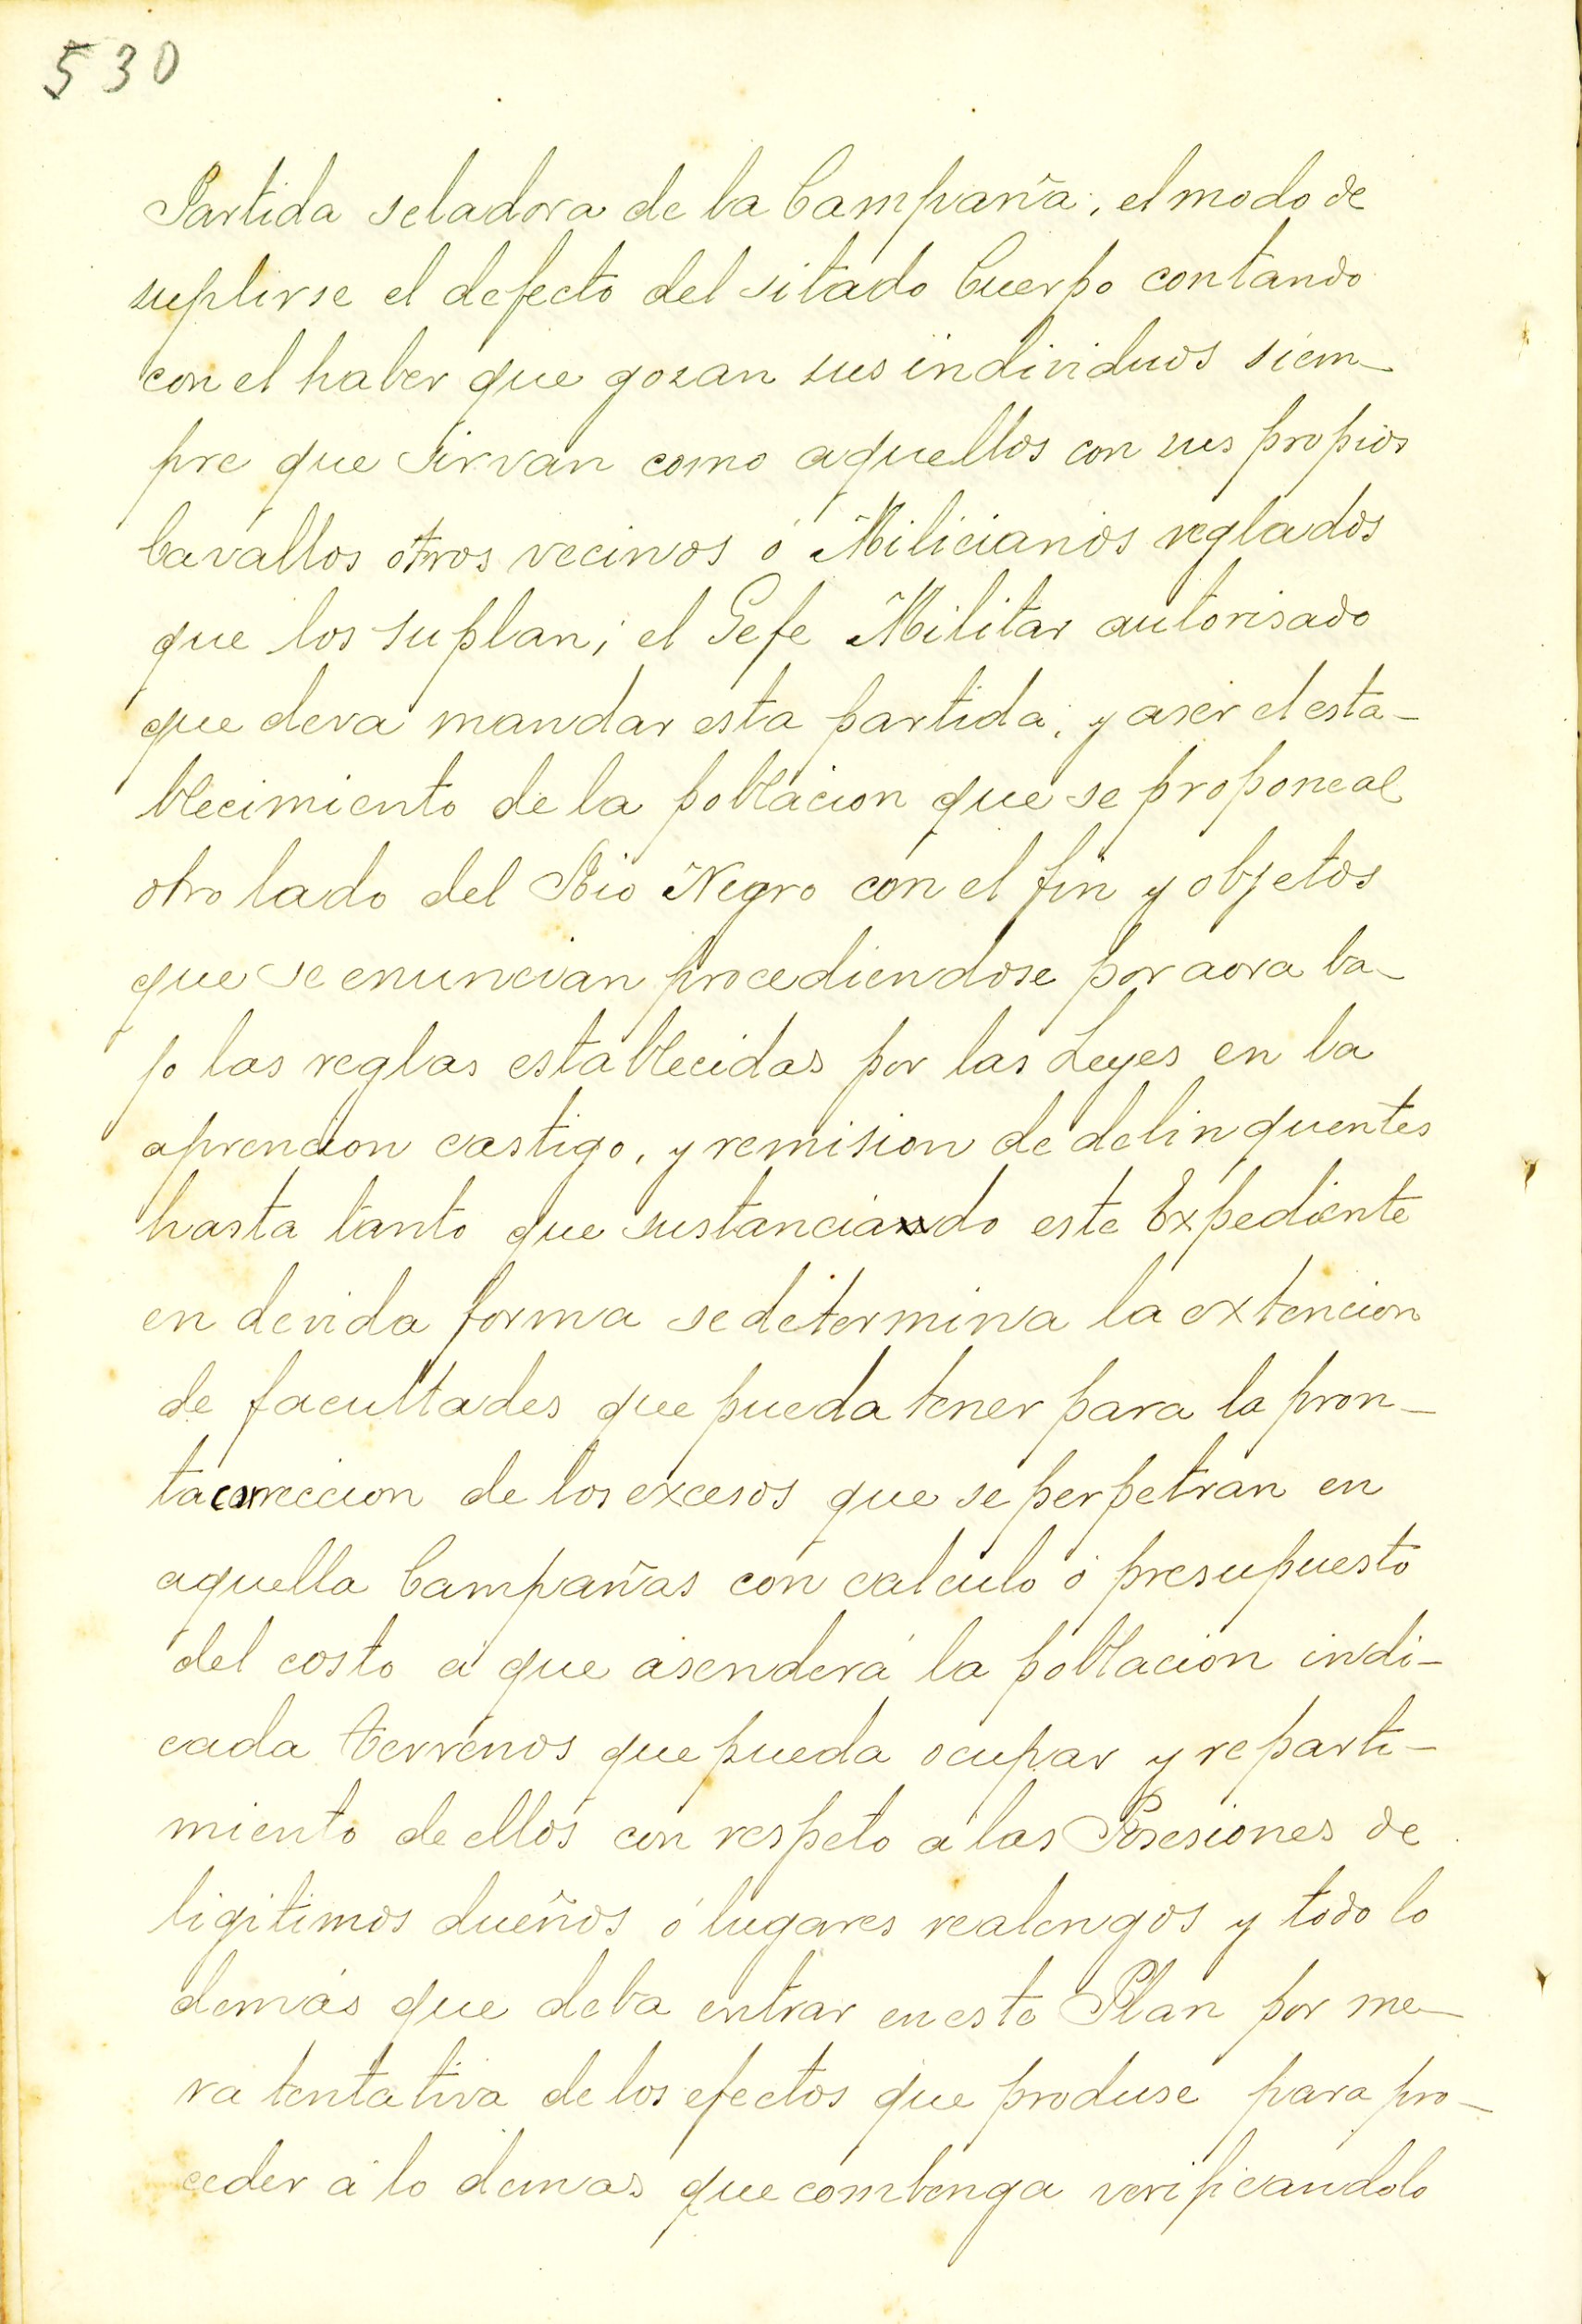 530
Partida seladora de la Campaña, el modo de
suplirse el defecto del sitado Cuerpo contando
con el haber que gozan sus individuos siem-
pre que sirvan como aquellos con sus propios
Cavallos otros vecinos ó Milicianos reglados
que los suplan; el Gefe Militar autorisado
que deva mandar esta partida, y aser el esta-
blecimiento de la poblacion que se propone al
otro lado del Rio Negro con el fin y objetos
que se enuncian procediendose por aora ba-
jo las reglas establecidas por las Leyes en la
aprencion castigo, y remision de delinquentes
hasta tanto que sustanciando este Expediente
en devida forma se determina la extencion
de facultades que pueda tener para la pron-
ta correccion de los excesos que se perpetran en
aquella Campañas con calculo ó presupuesto
del costo á que asenderá la poblacion indi-
cada terrenos que pueda ocupar y reparti-
miento de ellos con respeto á las Posesiones de
ligitimos dueños ó lugares realengos y todo lo
demás que deba entrar en este Plan por me-
ra tentativa de los efectos que produse para pro-
ceder á lo demas que combenga verificandolo